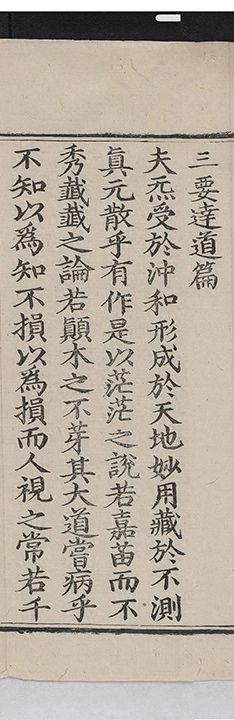 三要達道篇
夫炁受於沖和形成於天地妙用藏於不測
真元散乎有作是以茫茫之說若嘉苗而不
秀蘵蘵之論若顛木之不芽其大道嘗病乎
不知以為知不損以為損而人視之常若千